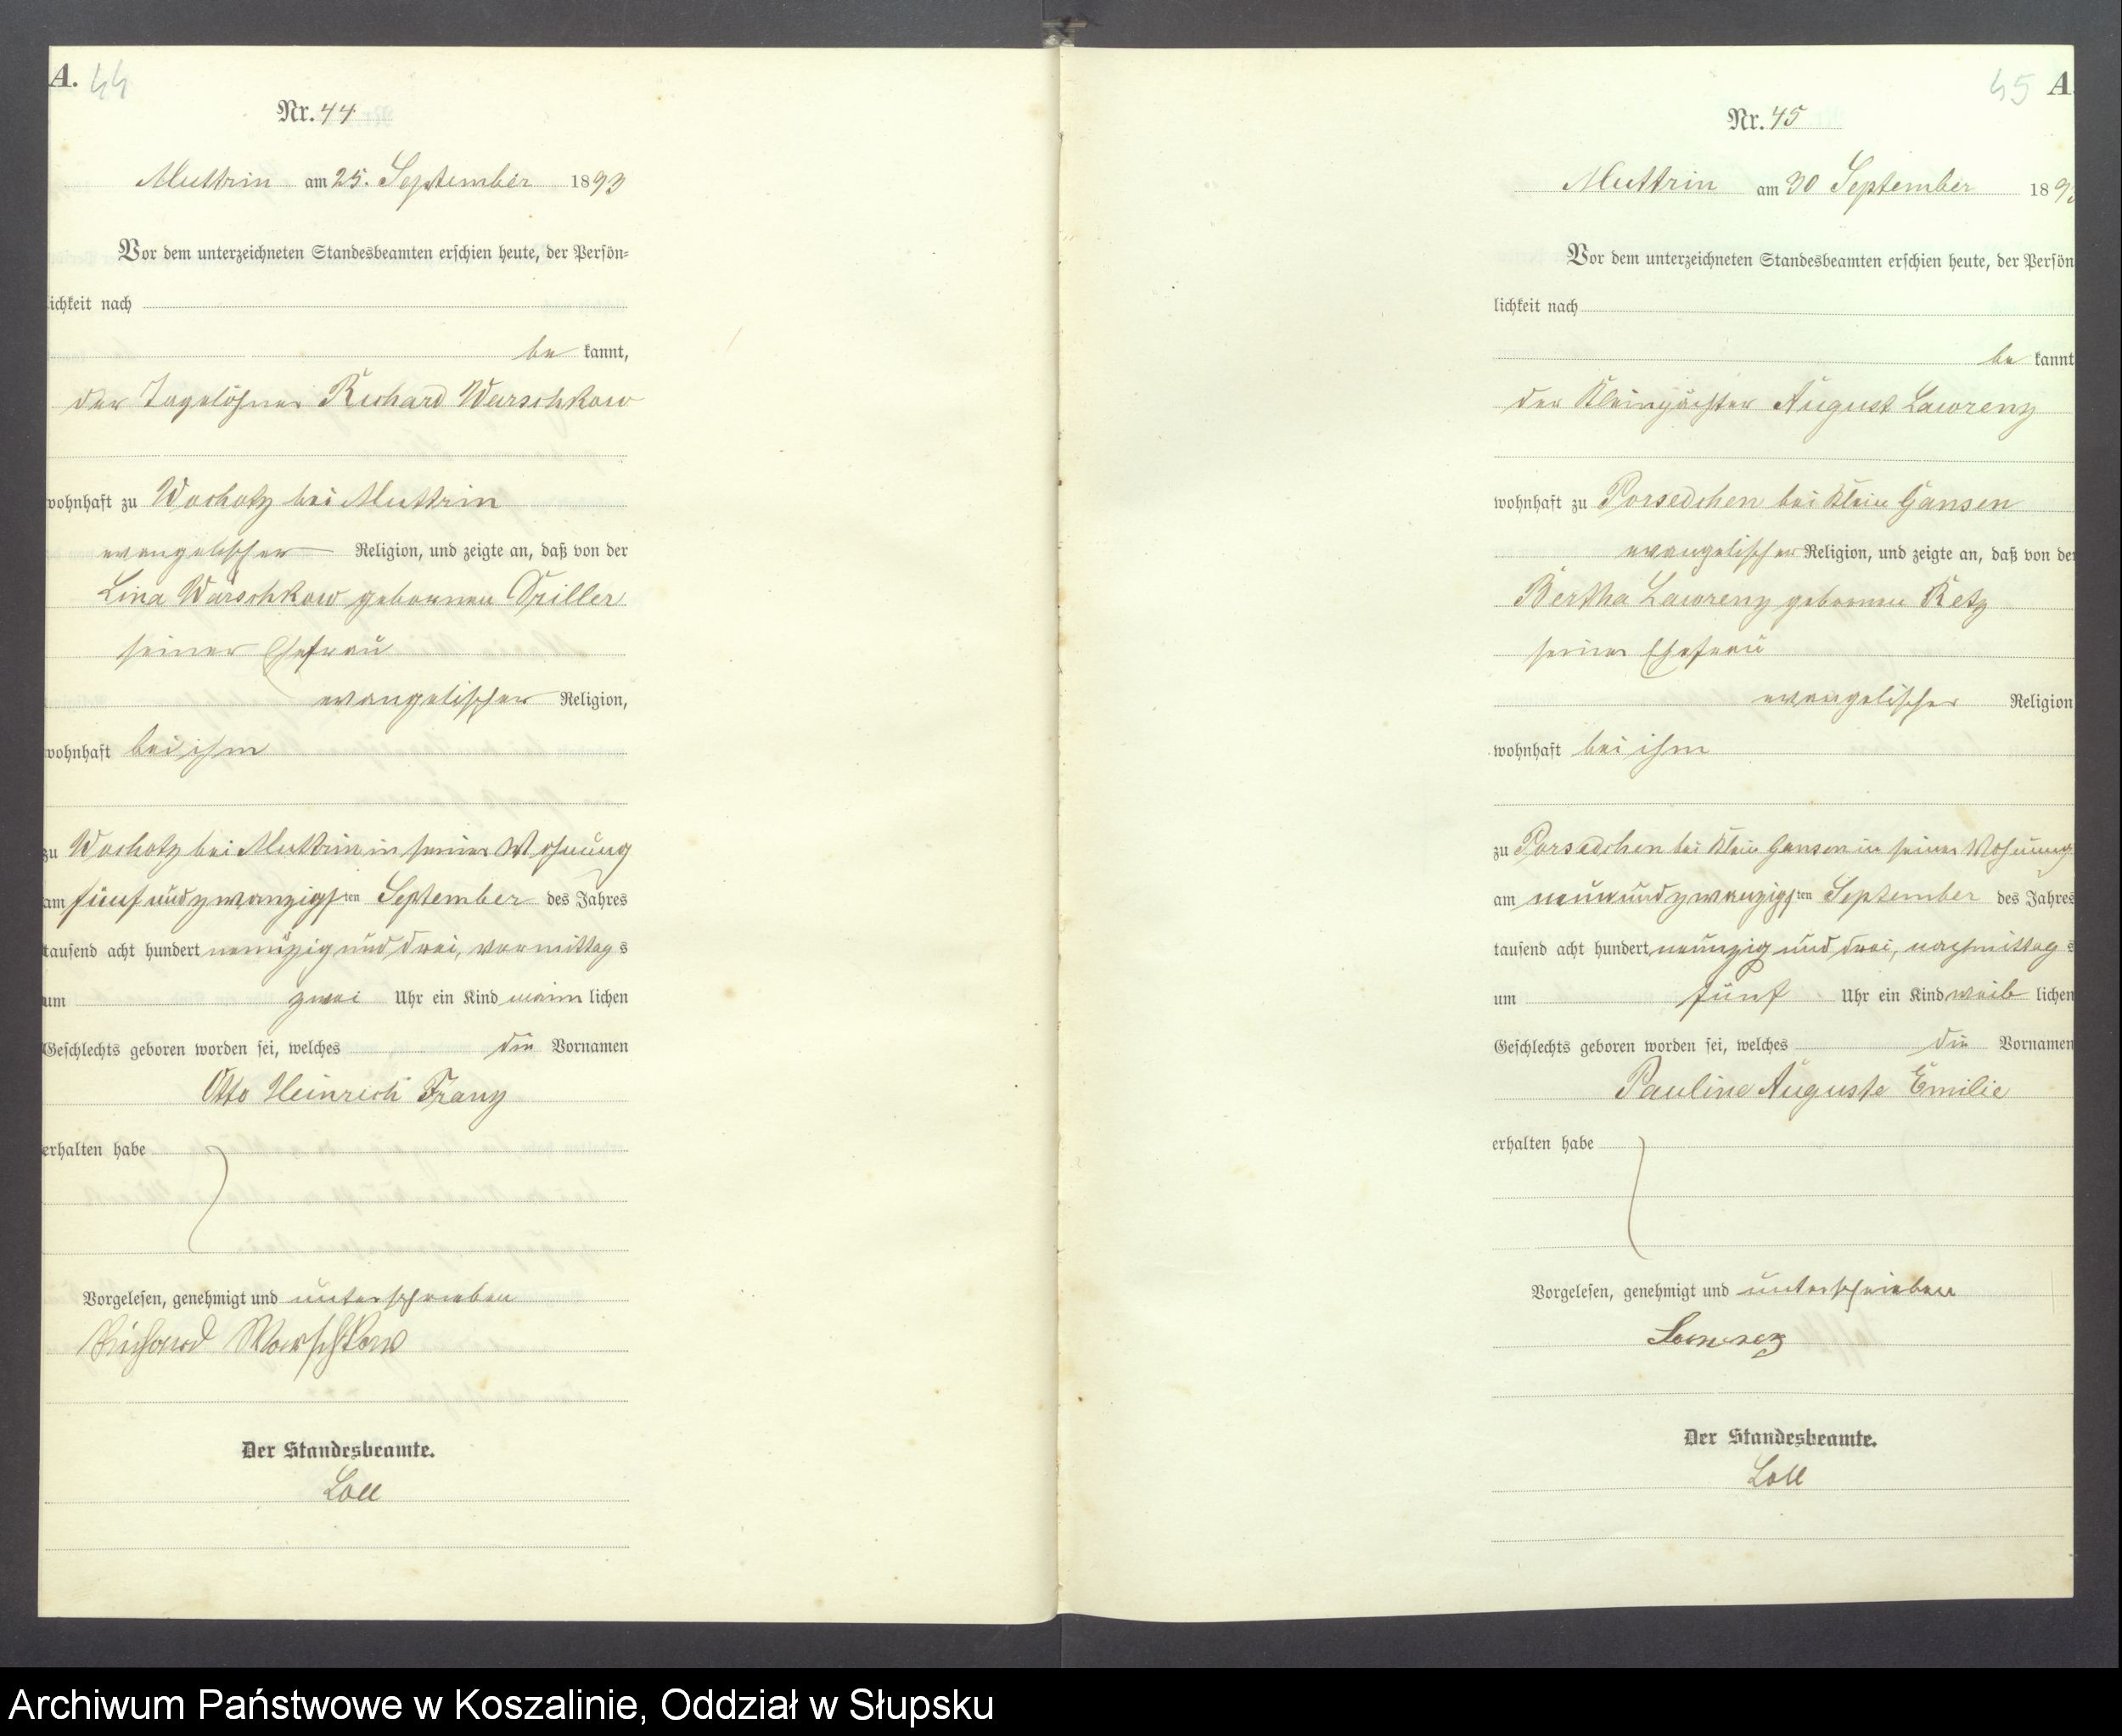 A. 44
Nr. 44
Muttrin am 25. September 1893
Vor dem unterzeichneten Standesbeamten erschien heute, der Persön-
lichkeit nach
be kannt,
der Tagelöhner Richard Warschkow
wohnhaft zu Wochotz bei Muttrin
evangelischer Religion, und zeigte an, daß von der
Lina Warschkow geborenen Spiller
seiner Ehefrau
evangelischer Religion,
wohnhaft bei ihm
zu Wochotz bei Muttrin in seiner Wohnung
am fünfundzwanzigsten September des Jahres
tausend acht hundert neunzig und drei, vormittags
um zwei Uhr ein Kind männlichen
Geschlechts geboren worden sei, welches die Vornamen
Otto Heinrich Franz
erhalten habe
Vorgelesen, genehmigt und unterschrieben
Richard Warschkow
Der Standesbeamte.
Loll
45 A.
Nr. 45
Muttrin am 30 September 1893
Vor dem unterzeichneten Standesbeamten erschien heute, der Persön
lichkeit nach
be kannt
der Kleinpächter August Lawrenz
wohnhaft zu Porsedchen bei Klein Gansen
evangelischer Religion, und zeigte an, daß von der
Bertha Lawrenz geborenen Retz
seiner Ehefrau
evangelischer Religion
wohnhaft bei ihm
zu Porsedchen bei Klein Gansen in seiner Wohnung
am neunundzwanzigsten September des Jahres
tausend acht hundert neunzig und drei, nachmittags
um fünf Uhr ein Kind weiblichen
Geschlechts geboren worden sei, welches die Vornamen
Pauline Auguste Emilie
erhalten habe
Vorgelesen, genehmigt und unterschrieben
Der Standesbeamte.
Loll
Archiwum Państwowe w Koszalinie, Oddział w Słupsku